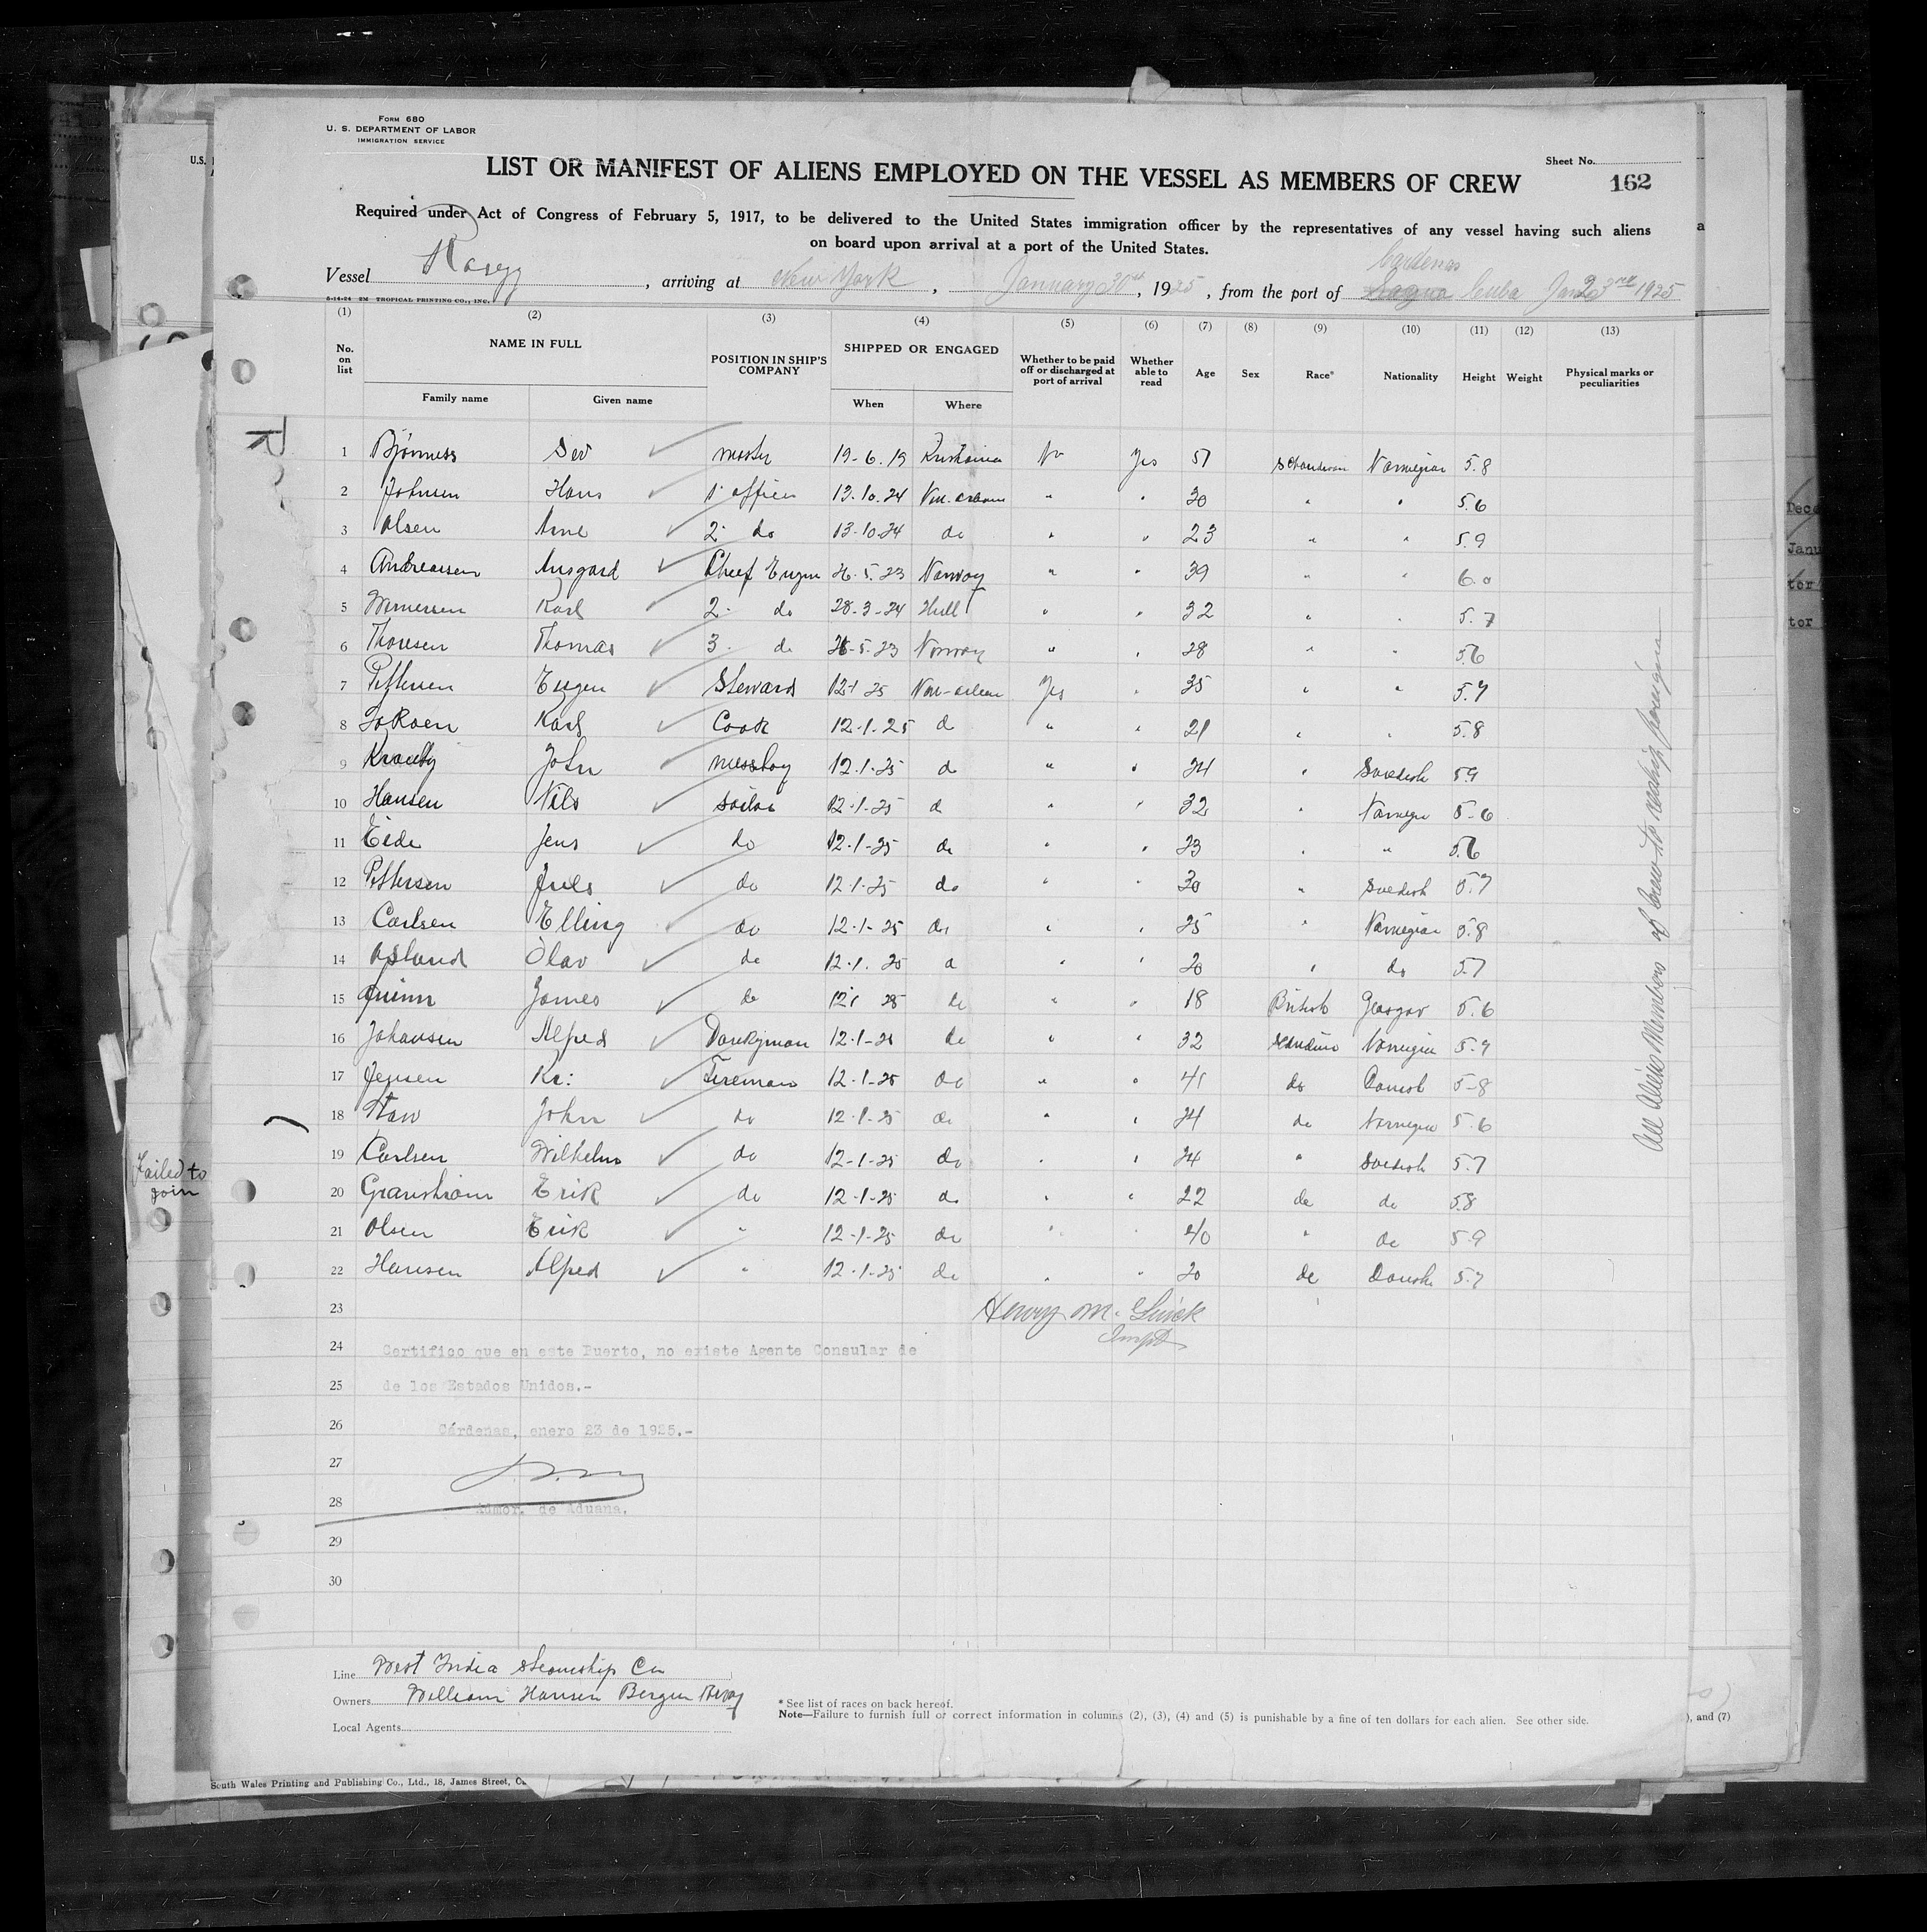 Form 680
U. S. DEPARTMENT OF LABOR
IMMIGRATION SERVICE
LIST OR MANIFEST OF ALIENS EMPLOYED ON THE VESSEL AS MEMBERS OF CREW
Sheet No.
162
Required under Act of Congress of February 5, 1917, to be delivered to the United States immigration officer by the representatives of any vessel having such aliens
on board upon arrival at a port of the United States.
Cardenas
Vessel , arriving at New York , January 30th, 1925, from the port of Sagua Cuba Jan 23rd 1925
5-14-24 2M TROPICAL PRINTING CO., INC.
(1) (2) (3) (4) (5) (6) (7) (8) (9) (10) (11) (12) (13)
No. on list NAME IN FULL POSITION IN SHIP'S COMPANY SHIPPED OR ENGAGED Whether to be paid off or discharged at port of arrival Whether able to read Age Sex Race* Nationality Height Weight Physical marks or peculiarities
Family name Given name When Where
1 master 19-6.19 No Yes 57 Norwegian 5.8
2 Johnsen Hans 1 officer 13.10.24 " " 30 " " 5.6
3 Olsen Arne 2 do 13-10.24 do " " 23 " " 5.9
4 Andreassen Ansgard Cheef 26.5.23 Norway " " 39 " " 6.0
5 Karl 2 do 28-3-24 Hull " " 32 " " 5.7
6 Thoresen Thomas 3 do 26-5.23 Norway " " 28 " " 5.6
7 Pettersen Eugen Steward 12-1 25 Yes " 35 " " 5.7
8 Karl Cook 12.1.25 do " " 21 " " 5.8
9 John messboy 12.1.25 do " " 24 " Swedish 5.9
10 Hansen Nils sailor 12.1-25 do " " 32 " 5-6
11 Eide Jens do 12.1-25 do " " 23 " " 5.6
12 Pettersen do 12.1.25 do " " 30 " Swedish 5.7
13 Carlsen Elling do 12.1-25 do " " 25 " Norwegian 5.8
14 Olav do 12.1.25 do " " 20 " do 5.7
15 Quinn James do 12 1 25 do " " 18 British Glasgow 5.6
16 Johansen Alfred Donkyman 12.1-25 do " " 32 5.7
17 Jensen Kr: Fireman 12.1-25 do " " 41 do Danish 5-8
18 John do 12.1-25 do " " 24 do 5.6
19 Carlsen Wilhelm do 12-1-25 do " " 24 " Swedish 5.7
20 Granstrom Erik do 12-1-25 do " " 22 do do 5.8
21 Olsen Erik " 12-1-25 do " " 40 " do 5-9
22 Hansen Alfred " 12.1-25 do " " 20 do 5.7
23
24 Certifico que en este Puerto, no existe Agente Consular de
25 de los Estados Unidos.-
26 Cárdenas, enero 23 de 1925.-
27
28 Admor. de Aduana.
29
30
All Alien Members of Crew to reship foreign
Failed to
join
Line West India Steamship Co
Owners William Hansen Bergen
Local Agents
* See list of races on back hereof.
Note—Failure to furnish full or correct information in columns (2), (3), (4) and (5) is punishable by a fine of ten dollars for each alien. See other side.
), and (7)
South Wales Printing and Publishing Co., Ltd., 18, James Street,